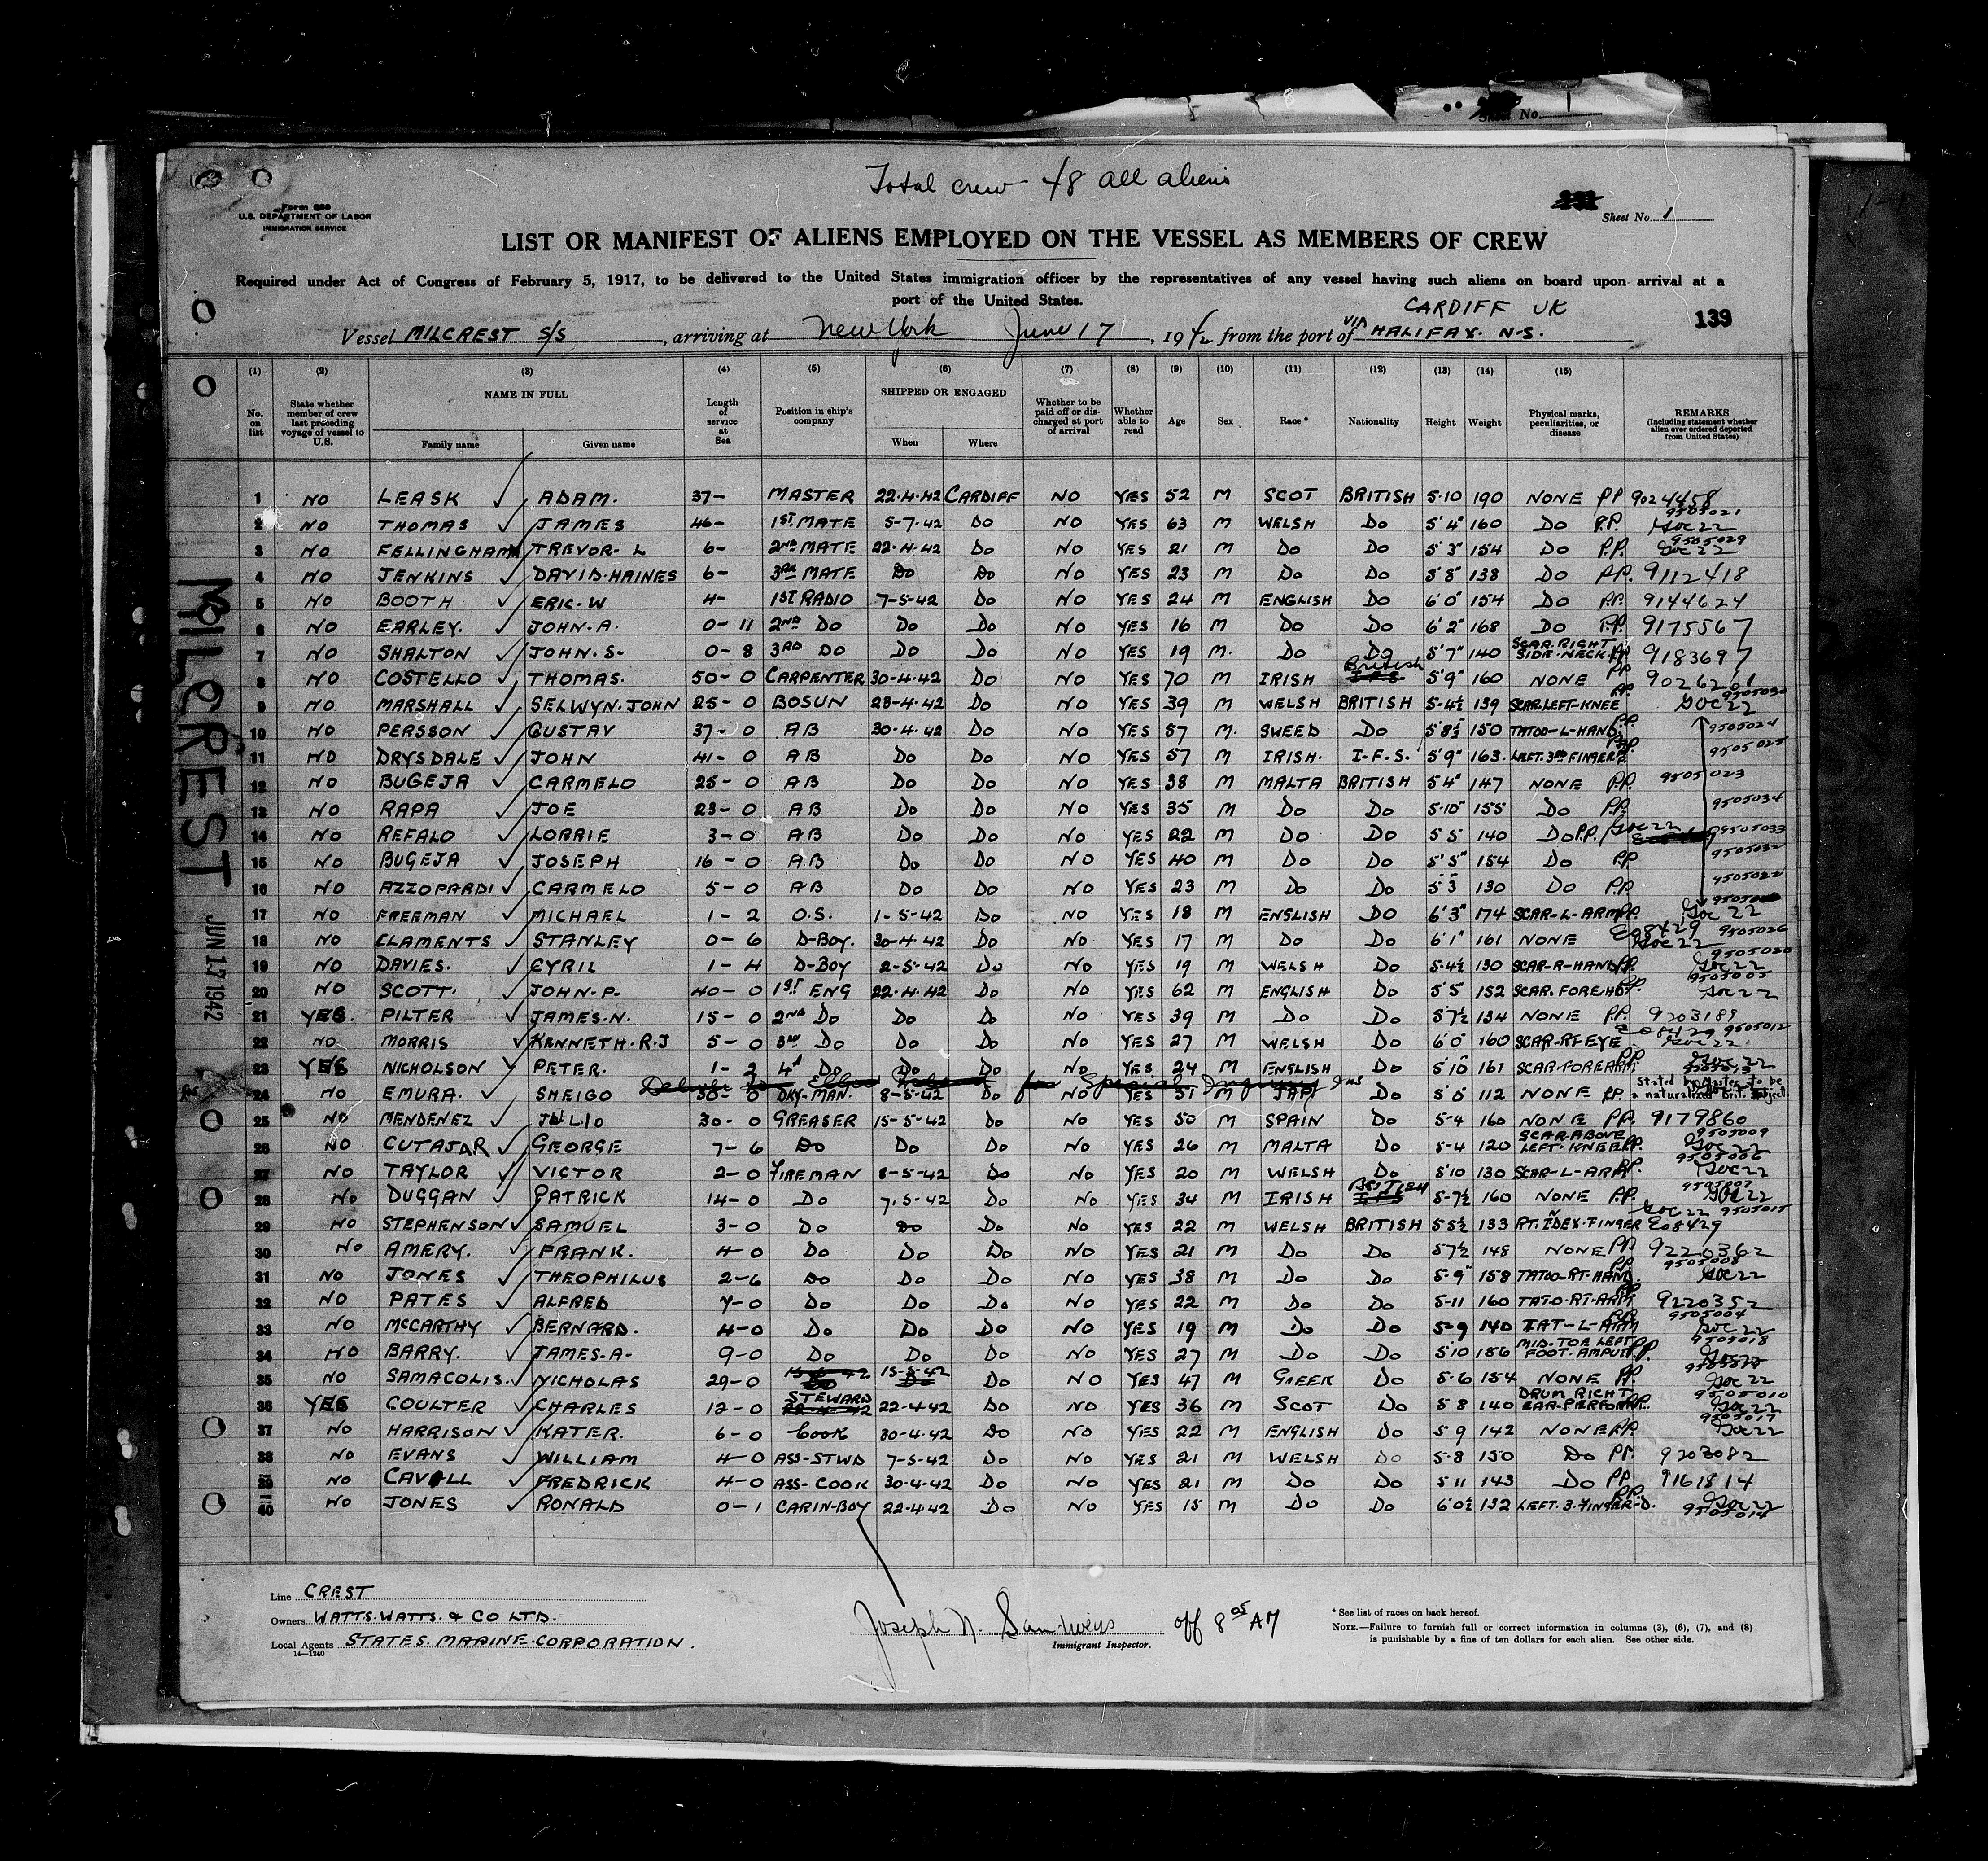 Sheet No. 1
Total crew 48 all aliens
Form 680
U.S. DEPARTMENT OF LABOR
IMMIGRATION SERVICE
Sheet No. 1
LIST OR MANIFEST OF ALIENS EMPLOYED ON THE VESSEL AS MEMBERS OF CREW
Required under Act of Congress of February 5, 1917, to be delivered to the United States immigration officer by the representatives of any vessel having such aliens on board upon arrival at a
port of the United States.
CARDIFF UK
139
Vessel MILCREST S/S, arriving at New York June 17, 1942 from the port of VIA HALIFAX. N-S.
(1) (2) (3) (4) (5) (6) (7) (8) (9) (10) (11) (12) (13) (14) (15)
No. on list
State whether member of crew last preceding voyage of vessel to U.S.
NAME IN FULL
Family name Given name
Length of service at Sea
Position in ship's company
SHIPPED OR ENGAGED
When Where
Whether to be paid off or discharged at port of arrival
Whether able to read
Age
Sex
Race*
Nationality
Height
Weight
Physical marks, peculiarities, or disease
REMARKS
(Including statement whether alien ever ordered deported from United States)
1 NO LEASK ADAM. 37- MASTER 22.4.42 CARDIFF NO YES 52 M SCOT BRITISH 5-10 190 NONE PP 9024458
2 NO THOMAS JAMES 46- 1ST MATE 5-7-42 Do NO YES 63 M WELSH Do 5'4" 160 Do P.P. 9505021
3 NO FELLINGHAM TREVOR-L 6- 2ND MATE 22-4-42 Do NO YES 21 M Do Do 5'3" 154 Do P.P. 9505029
4 NO JENKINS DAVID-HAINES 6- 3RD MATE Do Do NO YES 23 M Do Do 5'8" 138 Do P.P. 9112418
5 NO BOOTH ERIC-W 4- 1ST RADIO 7-5-42 Do NO YES 24 M ENGLISH Do 6'0" 154 Do P.P. 9144624
6 NO EARLEY. JOHN-A. 0-11 2ND Do Do Do NO YES 16 M Do Do 6'2" 168 Do P.P. 9175567
7 NO SHALTON JOHN-S- 0-8 3RD Do Do Do NO YES 19 M. Do Do 5'7" 140 SCAR-RIGHT SIDE-NECK. PP 9183697
8 NO COSTELLO THOMAS. 50-0 CARPENTER 30-4-42 Do NO YES 70 M IRISH British 5'9" 160 NONE PP 9026201
9 NO MARSHALL SELWYN-JOHN 25-0 BOSUN 28-4-42 Do NO YES 39 M WELSH BRITISH 5-4½ 139 SCAR-LEFT-KNEE PP 9505030
10 NO PERSSON GUSTAV 37-0 AB 30-4-42 Do NO YES 57 M. SWEED Do 5'8½ 150 TATOO-L-HAND. PP 9505024
11 NO DRYSDALE JOHN 41-0 AB Do Do NO YES 57 M IRISH. I-F-S. 5'9" 163. LEFT. 3RD FINGER PP. 9505025
12 NO BUGEJA CARMELO 25-0 AB Do Do NO YES 38 M MALTA BRITISH 5'4" 147 NONE P.P. 9505023
13 NO RAPA JOE 23-0 AB Do Do NO YES 35 M Do Do 5-10" 155 Do P.P. 9505034
14 NO REFALO LORRIE 3-0 AB Do Do NO YES 22 M Do Do 5 5 140 Do P.P. 9505033
15 NO BUGEJA JOSEPH 16-0 AB Do Do NO YES 40 M Do Do 5'5" 154 Do P.P. 9505032
16 NO AZZOPARDI CARMELO 5-0 AB Do Do NO YES 23 M Do Do 5'3 130 Do P.P. 9505022
17 NO FREEMAN MICHAEL 1-2 O.S. 1-5-42 Do NO YES 18 M ENGLISH DO 6'3" 174 SCAR-L-ARM PP.
18 NO CLAMENTS STANLEY 0-6 D-BOY. 30-4-42 Do NO YES 17 M Do Do 6'1" 161 NONE E08429 9505026
19 NO DAVIES. CYRIL 1-4 D-BOY 2-5-42 Do NO YES 19 M WELSH Do 5-4½ 130 SCAR-R-HAND PP. 9505020
20 NO SCOTT. JOHN-P. 40-0 1ST ENG 22-4-42 Do NO YES 62 M ENGLISH Do 5'5" 152 SCAR. FOREHD PP. 9505005
21 YES PILTER JAMES-N. 15-0 2ND Do Do Do NO YES 39 M Do Do 5 7½ 134 NONE P.P. 9203189
22 NO MORRIS KENNETH-R.J 5-0 3RD Do Do Do NO YES 27 M WELSH Do 6'0" 160 SCAR-RT-EYE E08429 9505012
23 YES NICHOLSON PETER. 1-2 4th Do Do Do NO YES 24 M ENGLISH Do 5'10" 161 SCAR-FOREARM PP 9505013
for Special Inquiry Ins
24 NO EMURA. SHEIGO 30-0 DKY-MAN. 8-5-42 Do NO YES 51 M JAP Do 5'0" 112 NONE PP. Stated by Master to be a naturalized Brit. Subject.
25 NO MENDENEZ JULIO 30-0 GREASER 15-5-42 Do NO YES 50 M SPAIN Do 5-4 160 NONE PP. 9179860
26 NO CUTAJAR GEORGE 7-6 Do Do Do NO YES 26 M MALTA Do 5-4 120 SCAR-ABOVE LEFT-KNEE PP. 9505009
27 NO TAYLOR VICTOR 2-0 FIREMAN 8-5-42 Do NO YES 20 M WELSH Do 5'10 130 SCAR-L-ARM PP. 9505006
28 NO DUGGAN PATRICK 14-0 Do 7.5-42 Do NO YES 34 M IRISH BRITISH 5-7½ 160 NONE P.P. 9505007
29 NO STEPHENSON SAMUEL 3-0 Do Do Do NO YES 22 M WELSH BRITISH 5 5½ 133 RT. INDEX-FINGER E08429 9505015
30 NO AMERY. FRANK. 4-0 Do Do Do NO YES 21 M Do Do 5 7½ 148 NONE PP. 9220362
31 NO JONES THEOPHILUS 2-6 Do Do Do NO YES 38 M Do Do 5-9" 158 TATOO-RT-HAND. PP 9505008
32 NO PATES ALFRED 7-0 Do Do Do NO YES 22 M Do Do 5-11 160 TATO-RT-ARM PP 9220352
33 NO McCARTHY BERNARD. 4-0 Do Do Do NO YES 19 M Do Do 5-9 140 TAT-L-ARM PP 9505004
34 NO BARRY. JAMES-A- 9-0 Do Do Do NO YES 27 M Do Do 5'10 156 MID-TOE LEFT FOOT. AMPUT PP. 9505018
35 NO SAMACOLIS. NICHOLAS 29-0 15-5-42 Do NO YES 47 M GREEK Do 5-6 154 NONE PP.
36 YES COULTER CHARLES 12-0 STEWARD 22-4-42 Do NO YES 36 M SCOT Do 5 8 140 DRUM RIGHT EAR-PERFORAT. PP. 9505010
37 NO HARRISON KATER. 6-0 Cook 30-4-42 Do NO YES 22 M ENGLISH Do 5 9 142 NONE PP. 9505017
38 NO EVANS WILLIAM 4-0 ASS-STWD 7-5-42 Do NO YES 21 M WELSH Do 5-8 150 Do PP. 9203082
39 NO CAVILL FREDRICK 4-0 ASS-COOK 30-4-42 Do NO YES 21 M Do Do 5 11 143 Do PP. 9161814
40 NO JONES RONALD 0-1 CABIN-BOY 22-4-42 Do NO YES 15 M Do Do 6'0½ 132 LEFT. 3. FINGER-D. PP. 9505014
MILCREST
JUN 17 1942
Line CREST
Owners WATTS. WATTS. & CO LTD.
Local Agents STATES MARINE-CORPORATION.
14—1240
Joseph N. off 8 05 AM
Immigrant Inspector.
* See list of races on back hereof.
NOTE.—Failure to furnish full or correct information in columns (3), (6), (7), and (8)
is punishable by a fine of ten dollars for each alien. See other side.